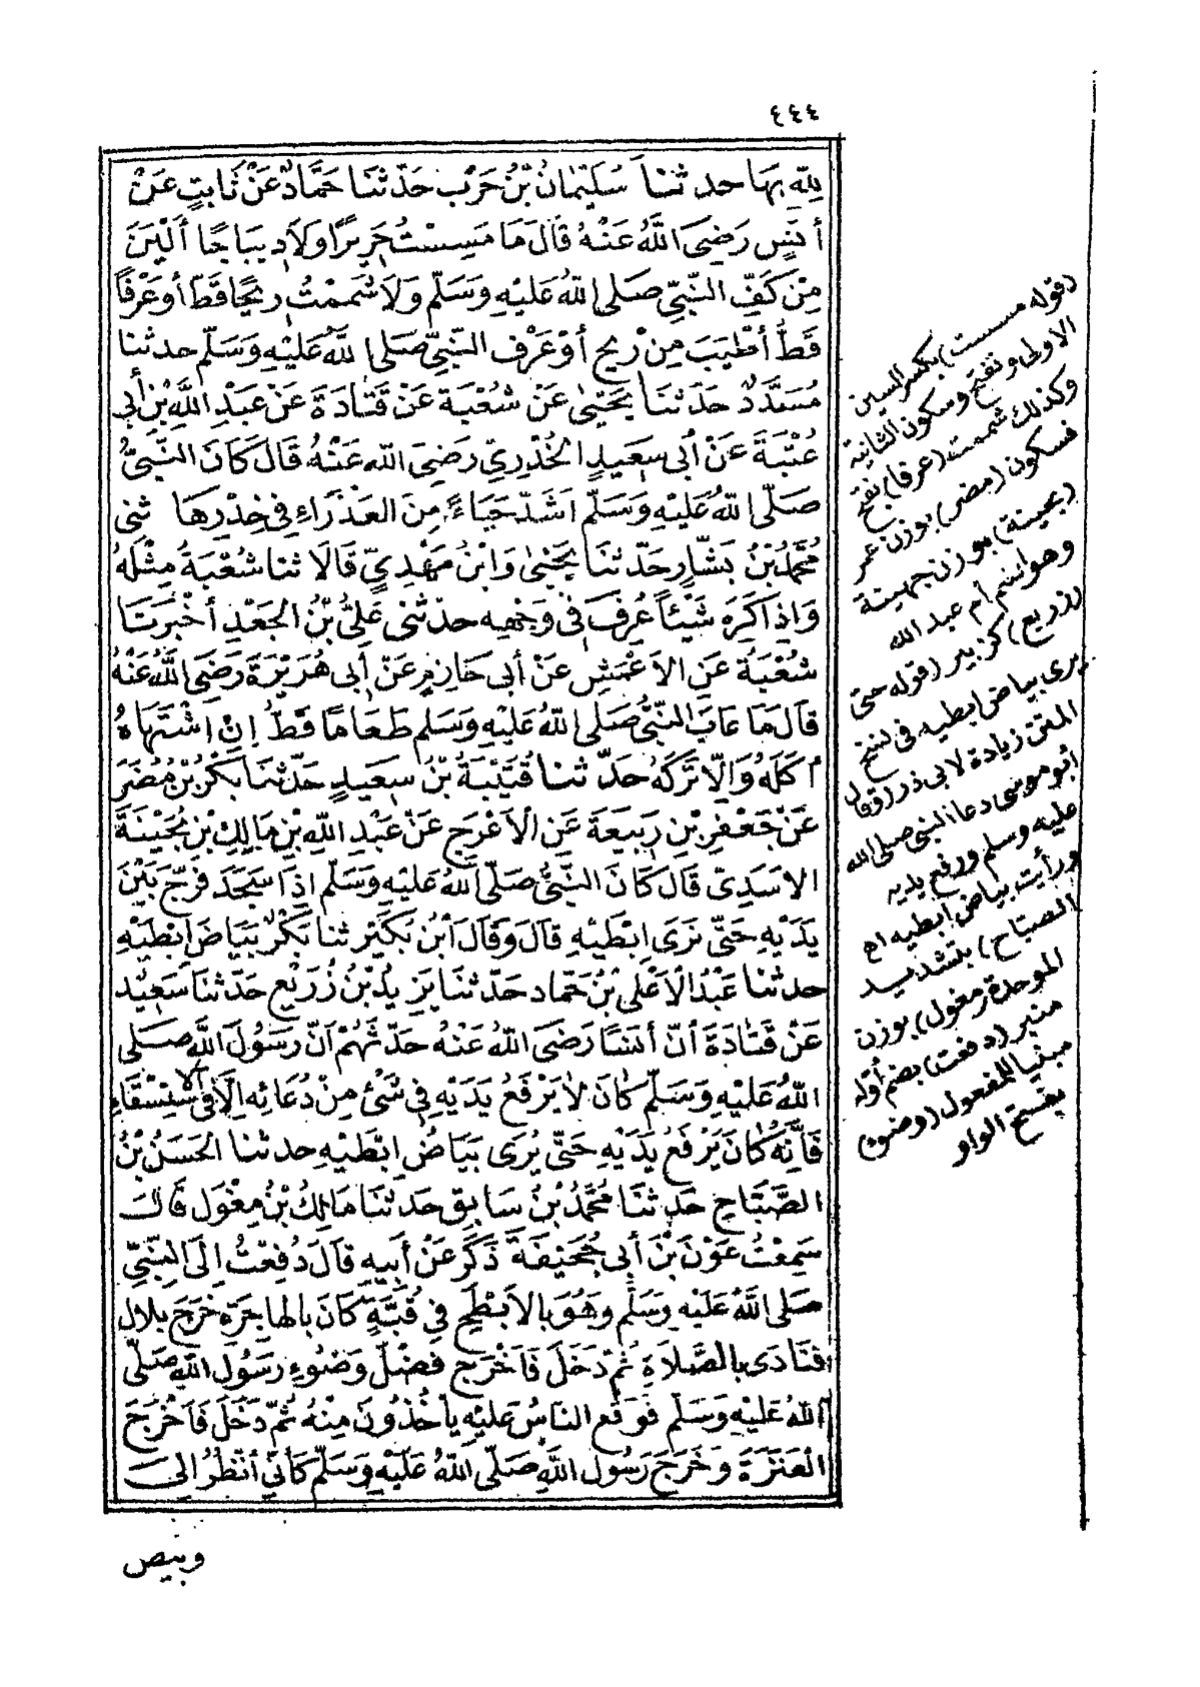 ٤٤٤
لِلّهِ بِهَا حدثنا سُلَيْمَانُ بْنُ حَرْب حَدّثَنَا حَمَّادٌ عَنْ ثَابِتٍ عَنْ
أَنَسٍ رَضِيَ اللهُ عَنْهُ قَالَ مَا مَسِسْتُ حَرِيرًا وَلَا دِيبَاجًا أَلْيَنَ
مِنْ كَفِّ النَّبِيِّ صَلى اللهُ عَلَيْهِ وَسَلَّم وَلَا شَمِمْتُ رِيحًا قَطّ أَوْعَرْفًا
قَطُّ أَطْيَبَ مِنْ رِيحِ أَوْ عَرْفِ النَّبِيِّ صَلى اللهُ عَلَيْهِ وَسَلّم حدثنا
مُسَدَّدٌ حَدّثَنَا يَحْيَىٰ عَنْ شُعْبَة عَنْ قَتَادَةَ عَنْ عَبْدِ اللَّهِ بْنِ أَبِي
عُتْبَةَ عَنْ أَبِي سَعِيدٍ الْخُدْرِيِ رَضِيَ الله عَنْهُ قَالَ كَانَ النَّبِيُّ
صَلّى اللهُ عَلَيْهِ وَسَلَّم أَشَدّ حَيَاءً مِنَ الْعَذْرَاءِ فِي خِدْرِهَا ثنى
مُحَمَّدُ بْنُ بَشَّارٍ حَدّثنَا يَحْيىٰ وَابْنُ مَهْدِيّ قَالَا ثنا شُعْبَةُ مِثْلَهُ
وَإِذَا كَرِهَ شَيْئاً عُرِفَ فِي وَجْهِه حدثنى عَلِيُّ بْنُ الْجَعْدِ أَخْبَرَنَا
شُعْبَةُ عَنِ الْاَعْمَشِ عَنْ أَبي حَازِمٍ عَنْ أَبِي هُرَيْرَةَ رَضِيَ اللهُ عَنْهُ
قَالَ مَا عَابَ النَّبِيُّ صَلى اللهُ عَلَيْهِ وَسَلم طَعَامًا قَطُّ إِنْ اشْتَهَاهُ
أكَلَهُ وَإِلّا تَرَكَهُ حَدّثنا قُتَيْبَةُ بْنُ سَعِيدٍ حَدّثنَا بَكْرُ بْنُ مُضَرَ
عَنْ جَعْفَرِ بْنِ رَبِيعَةَ عَنِ الْأَعْرَجِ عَنْ عَبْدِ اللهِ بْنِ مَالِكِ بْنِ بُحَيْنَةَ
الاَسَدِيّ قَالَ كَانَ النَّبِيُّ صَلّى اللهُ عَلَيْهِ وَسَلَّم إِذَا سَجَدَ فَرَّجَ بَيْنَ
يَدَيْهِ حَتّى نَرَى إِبْطَيْهِ قَالَ وَقَالَ ابْنُ بُكَيْرٍ ثنا بَكْرٌ بَيَاضَ إِبْطَيْهِ
حدثنا عَبْدُ الْأَعْلَى بْنُ حَمَّاد حَدّثنَا يَزِيدُ بْنُ زُرَيْعٍ حَدّثنَا سَعِيْد
عَنْ قَتَادَةَ أَنّ أَنَسًا رَضِيَ اللهُ عَنْهُ حَدّثَهُمْ أَنّ رَسُولَ اللَّه صَلى
اللهُ عَلَيْهِ وَسَلَّم كَانَ لَا يَرْفَعُ يَدَيْهِ فِي شَئٍ مِنْ دُعَائِه إِلّا فِي الْاِسْتِسْقَاءِ
فَأنَّه كَانَ يَرْفَعُ يَدَيْهِ حَتَّى يُرَى بَيَاضُ إِبْطَيْهِ حدثنا الْحَسَنُ بْنُ
الصَّبَّاحِ حَدثنَا مُحَمَّدُ بْنُ سَابِقٍ حَدثنَا مَالِكُ بْنُ مِغْوَل قَالَ
سَمِعْتُ عَوْنَ بْنَ أَبِي جُحَيْفَةَ ذَكَرَ عَنْ أَبِيهِ قَالَ دُفِعْتُ إِلَى النَّبِيِّ
صَلى اللَّهُ عَلَيْهِ وَسَلَّم وَهُوَ بِالاَبْطَحِ فِي قُبَّةٍ كَانَ بِالْهَاجِرَةِ خَرَجَ بِلَال
فَنَادَى بِالصَّلَاةِ ثُمّ دَخَلَ فَاَخْرَجَ فَضْلَ وَضُوءِ رَسُولِ اللَّهِ صَلّى
اللهُ عَلَيْهِ وَسَلَّم فَوَقَع النَاسُ عَلَيْهِ يَأْخُذُونَ مِنْهُ ثُمَّ دَخَلَ فَاَخْرَجَ
الْعَنَزَةَ وَخَرَجَ رَسُول اللهِ صَلّى اللهُ عَلَيْهِ وَسَلّم كَأَنّي أَنْظُرُ إِلى
وبيص
(قوله مسست) بكسر السين
الاولى وتفتح وسكون الثانية
وكذلك شممت (عرفا) بفتح
فسكون (مضر) بوزن عمر
(بحينة) بوزن جهينة
وهو اسم أم عبد الله
(زريع) كزبير (قوله حتى
يرى بياض ابطيه) فى نسخ
المتن زيادة لابى ذر (وقال
أبو موسى دعا النبى صلى الله
عليه وسلم ورفع يديه
ورأيت بياض ابطيه اه
(الصباح) بتشديد
الموحدة (مغول) بوزن
منبر (دفعت) بضم أوله
مبنيا للمفعول (وضوء)
بفتح الواو